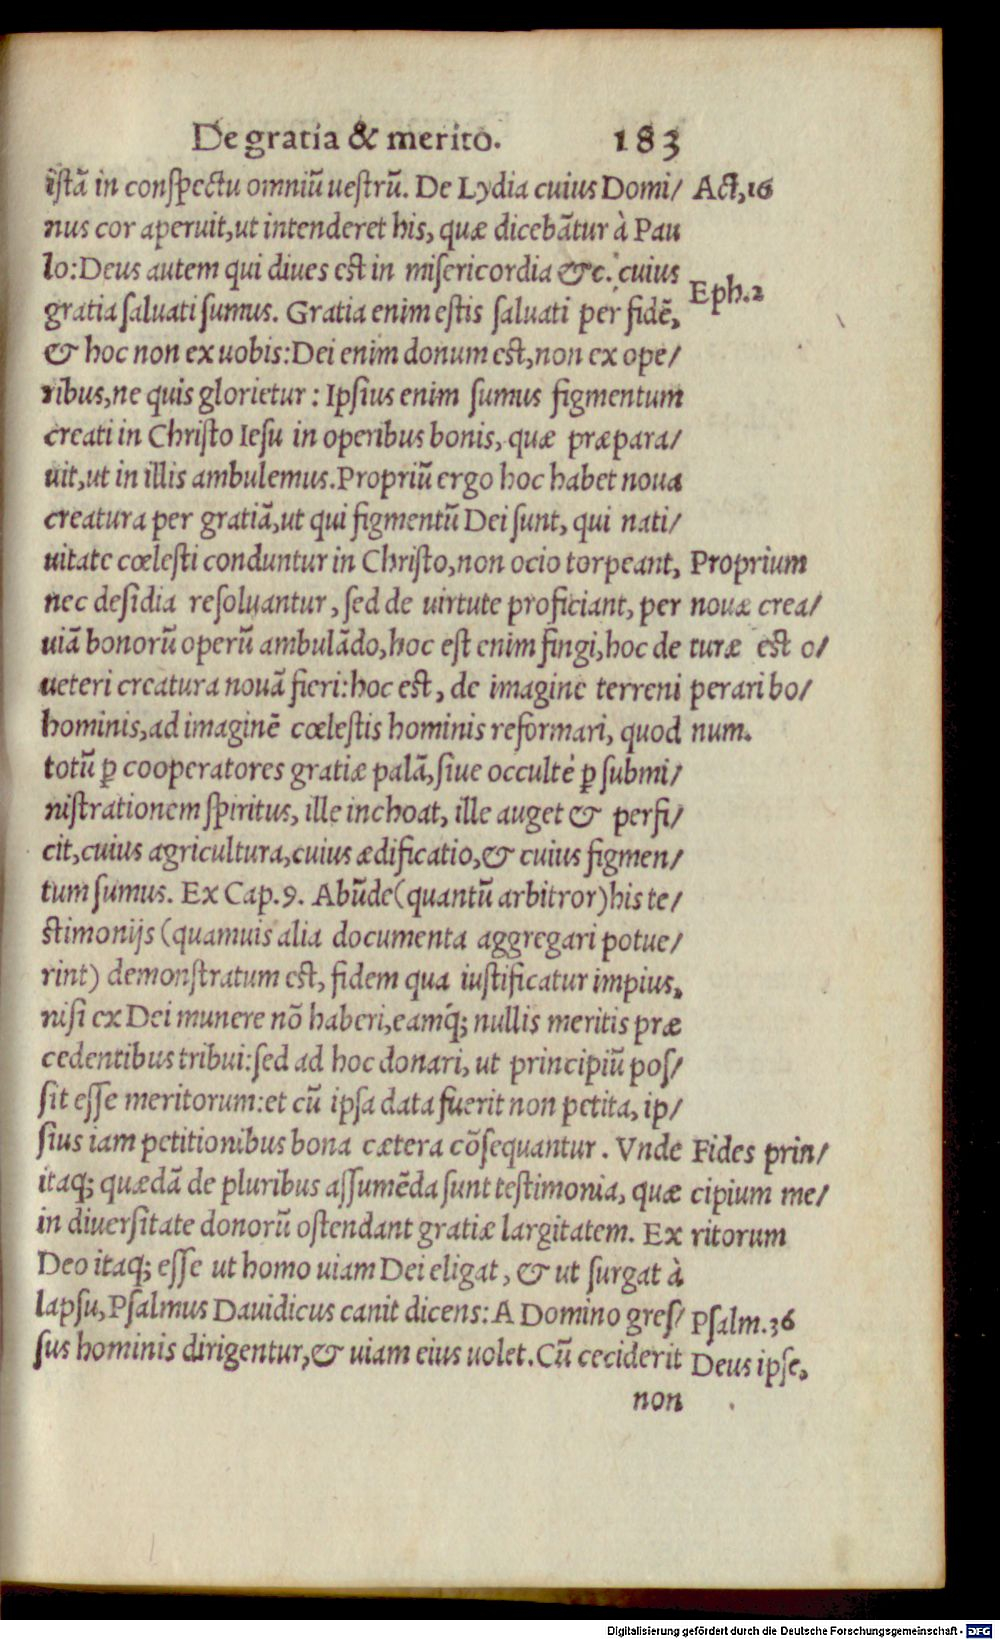 De gratia & merito. 183
istā in conspectu omniū uestrū. De Lydia cuius Domi/ Act,16
nus cor aperuit,ut intenderet his, quæ dicebātur à Pau
lo:Deus autem qui diues est in misericordia &c. cuius
Eph.2
gratia saluati sumus. Gratia enim estis saluati per fidē,
& hoc non ex uobis:Dei enim donum est,non ex ope/
ribus,ne quis glorietur : Ipsius enim sumus figmentum
creati in Christo Iesu in operibus bonis, quæ præpara/
uit,ut in illis ambulemus.Propriū ergo hoc habet noua
creatura per gratiā,ut qui figmentū Dei sunt, qui nati/
uitate cœlesti conduntur in Christo,non ocio torpeant, Proprium
nec desidia resoluantur, sed de uirtute proficiant, per nouæ crea/
uiā bonorū operū ambulādo,hoc est enim fingi,hoc de turæ est o/
ueteri creatura nouā fieri:hoc est, de imagine terreni perari bo/
hominis,ad imaginē cœlestis hominis reformari, quod num.
totū ꝑ cooperatores gratiæ palā,siue occultè ꝑ submi/
nistrationem spiritus, ille inchoat, ille auget & perfi/
cit,cuius agricultura,cuius ædificatio,& cuius figmen/
tum sumus. Ex Cap.9. Abūde(quantū arbitror)his te/
stimonijs (quamuis alia documenta aggregari potue/
rint) demonstratum est, fidem qua iustificatur impius,
nisi ex Dei munere nō haberi,eamq́; nullis meritis præ
cedentibus tribui:sed ad hoc donari, ut principiū pos/
sit esse meritorum:et cū ipsa data fuerit non petita, ip/
sius iam petitionibus bona cætera cōsequantur. Vnde Fides prin/
itaq; quædā de pluribus assumēda sunt testimonia, quæ cipium me/
in diuersitate donorū ostendant gratiæ largitatem. Ex ritorum
Deo itaq; esse ut homo uiam Dei eligat, & ut surgat à
lapsu, Psalmus Dauidicus canit dicens: A Domino gres/ Psalm.36
sus hominis dirigentur,& uiam eius uolet.Cū ceciderit Deus ipse,
non
Digitalisierung gefördert durch die Deutsche Forschungsgemeinschaft - DFG